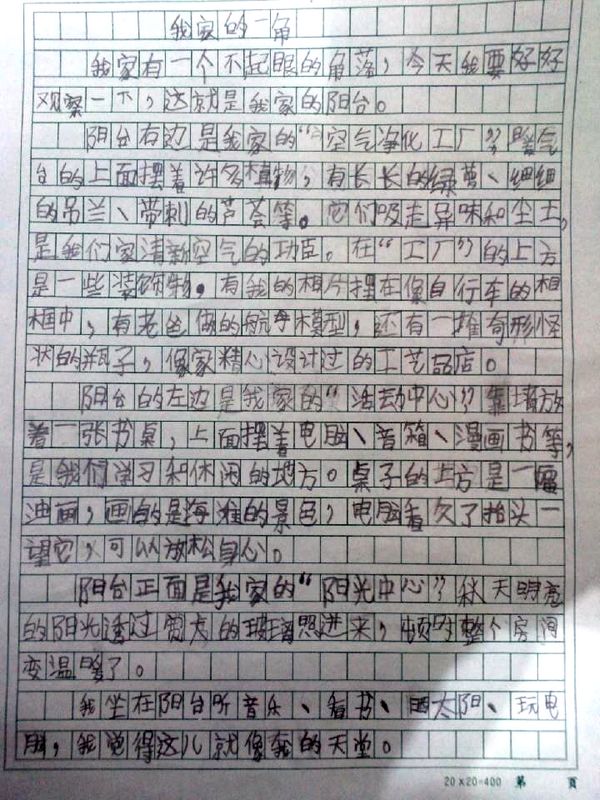 我家的一角
我家有一个不起眼的角落，今天我要好好
观察一下，这就是我家的阳台。
阳台右边是我家的“空气净化工厂”，暖气
台的上面摆着许多植物，有长长的绿萝、细细
的吊兰、带刺的芦荟等。它们吸走异味和尘土，
是我们家清新空气的功臣。在“工厂”的上方
是一些装饰物。有我的相片摆在像自行车的相
框中，有老爸做的航母模型，还有一堆奇形怪
状的瓶子，像家精心设计过的工艺品店。
阳台的左边是我家的“活动中心”靠墙放
着一张书桌，上面摆着电脑、音箱、漫画书等，
是我们学习和休闲的地方。桌子的上方是一幅
油画，画的是海滩的景色，电脑看久了抬头一
望它，可以放松身心。
阳台正面是我家的“阳光中心”秋天明亮
的阳光透过宽大的玻璃照进来，顿时整个房间
变温暖了。
我坐在阳台听音乐、看书、晒太阳、玩电
脑，我觉得这儿就像我的天堂。
20×20=400 第 页